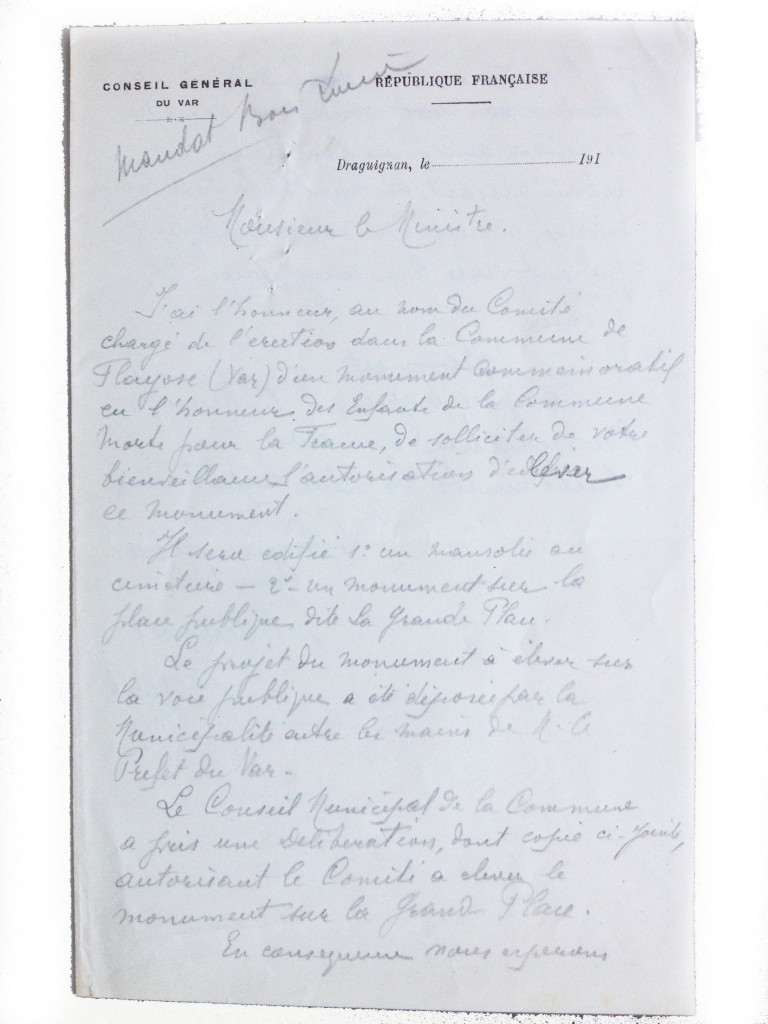 CONSEIL GÉNÉRAL
DU VAR
RÉPUBLIQUE FRANÇAISE
Mandat
Draguignan, le 191
Monsieur le Ministre.
J'ai l'honneur, au nom du Comité
chargé de l'érection dans la Commune de
Flayosc (Var) d'un monument Commémoratif
en l'honneur des Enfants de la Commune
Morts pour la France, de solliciter de votre
bienveillance l'autorisation d'élever
ce monument.
Il sera édifié 1º un mausolée au
cimetière — 2º un monument sur la
place publique dite La Grande Place.
Le projet du monument à élever sur
la voie publique a été déposé par la
Municipalité entre les mains de M. le
Préfet du Var.
Le Conseil Municipal de la Commune
a pris une Délibération, dont copie ci-jointe,
autorisant le Comité a élever le
monument sur la Grand Place.
En conséquence nous espérons